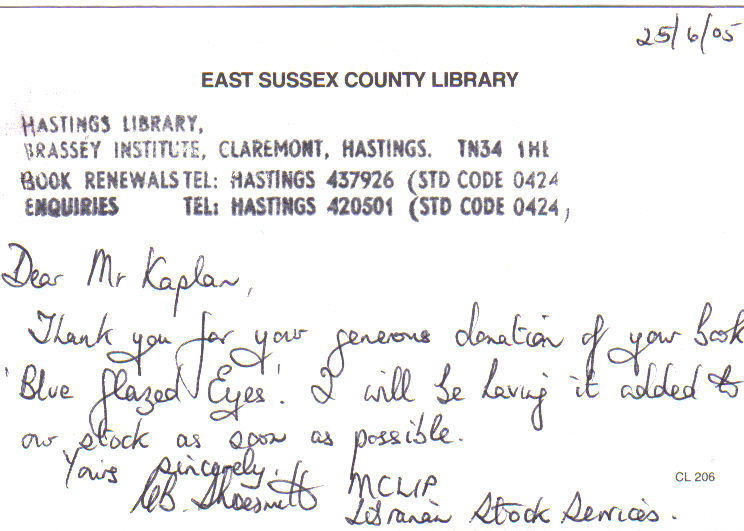 25/6/05
EAST SUSSEX COUNTY LIBRARY
HASTINGS LIBRARY,
BRASSEY INSTITUTE, CLAREMONT, HASTINGS. TN34 1HE
BOOK RENEWALS TEL: HASTINGS 437926 (STD CODE 0424
ENQUIRIES TEL: HASTINGS 420501 (STD CODE 0424,
Dear Mr Kaplan,
Thank you for your generous donation of your book
'Blue Glazed Eyes'. I will be having it added to
our stock as soon as possible.
Yours sincerely,
MCLIP
CL 206
Librarian Stock Services.